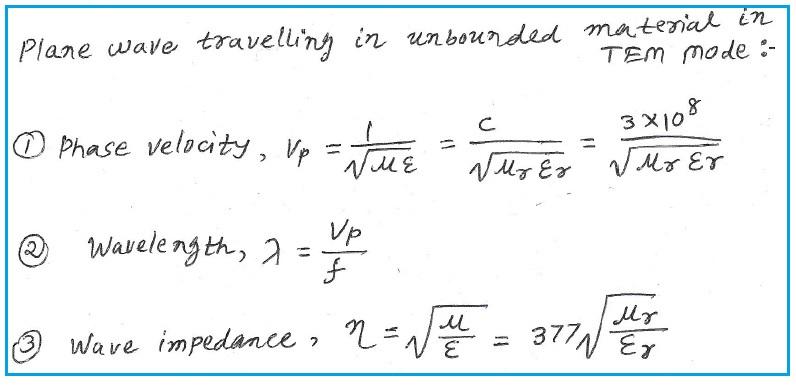 Plane wave travelling in unbounded material in
TEM mode :-
① Phase velocity, Vp = 1/√με = c/√μr εr = 3×10⁸/√μr εr
② Wavelength, λ = Vp/f
③ Wave impedance, η = √(μ/ε) = 377√(μr/εr)